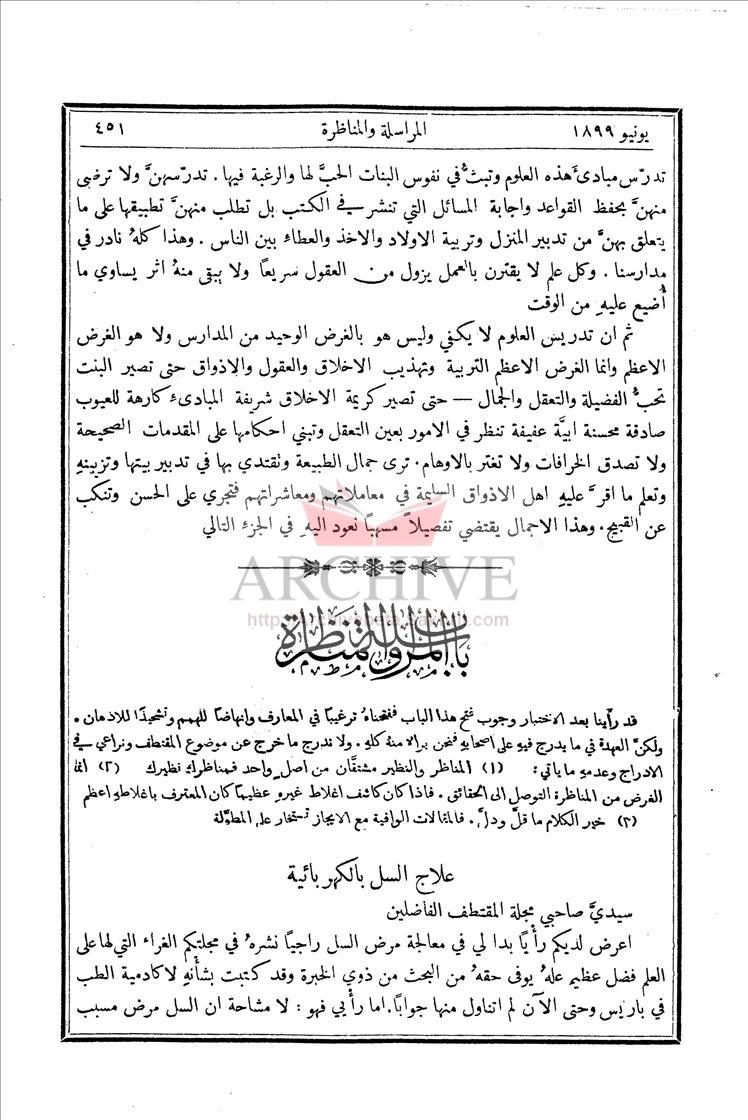 يونيو ١٨٩٩ المراسلة والمناظرة ٤٥١
تدرّس مبادئ هذه العلوم وتبثُّ في نفوس البنات الحبَّ لها والرغبة فيها . تدرّسهنَّ ولا ترضى
منهنَّ بحفظ القواعد واجابة المسائل التي تنشر في الكتب بل تطلب منهنَّ تطبيقها على ما
يتعلق بهنَّ من تدبير المنزل وتربية الاولاد والاخذ والعطاء بين الناس . وهذا كلهُ نادر في
مدارسنا . وكل علم لا يقترن بالعمل يزول من العقول سريعًا ولا يبقى منهُ اثر يساوي ما
أُضيع عليهِ من الوقت
ثم ان تدريس العلوم لا يكفي وليس هو بالغرض الوحيد من المدارس ولا هو الغرض
الاعظم وانما الغرض الاعظم التربية وتهذيب الاخلاق والعقول والاذواق حتى تصير البنت
تحبُّ الفضيلة والتعقل والجمال — حتى تصير كريمة الاخلاق شريفة المبادىء كارهة للعيوب
صادقة محسنة ابيَّة عفيفة تنظر في الامور بعين التعقل وتبني احكامها على المقدمات الصحيحة
ولا تصدق الخرافات ولا تغتر بالاوهام . ترى جمال الطبيعة وتقتدي بها في تدبير بيتها وتزيينهِ
وتعلم ما اقرَّ عليهِ اهل الاذواق السليمة في معاملاتهم ومعاشراتهم فتجري على الحسن وتنكب
عن القبيح . وهذا الاجمال يقتضي تفصيلاً مسهبًا نعود اليهِ في الجزء التالي
ARCHIVE
باب المراسلة والمناظرة
قد رأينا بعد الاختبار وجوب فتح هذا الباب ففتحناهُ ترغيبًا في المعارف وانهاضًا للهمم وتشحيذًا للاذهان .
ولكنَّ العهدة في ما يدرج فيهِ على اصحابهِ فنحن برالا منهُ كلهِ . ولا ندرج ما خرج عن موضوع المقتطف ونراعي في
الادراج وعدمهِ ما ياتي : (١) المناظر والنظير مشتقَّان من اصل واحد فمناظرك نظيرك (٢) انما
الغرض من المناظرة التوصل الى الحقائق . فاذا كان كاشف اغلاط غيرهِ عظيمًا كان المعترف باغلاطهِ اعظم
(٣) خير الكلام ما قلَّ ودلَّ . فالمقالات الوافية مع الايجاز تستخار على المطوَّلة
علاج السل بالكهربائية
سيديَّ صاحبي مجلة المقتطف الفاضلين
اعرض لديكم رأيًا بدا لي في معالجة مرض السل راجيًا نشرهُ في مجلتكم الغراء التي لها على
العلم فضل عظيم علهُ يوفى حقهُ من البحث من ذوي الخبرة وقد كتبت بشأنهِ لاكادمية الطب
في باريس وحتى الآن لم اتناول منها جوابًا. اما رأيي فهو : لا مشاحة ان السل مرض مسبب